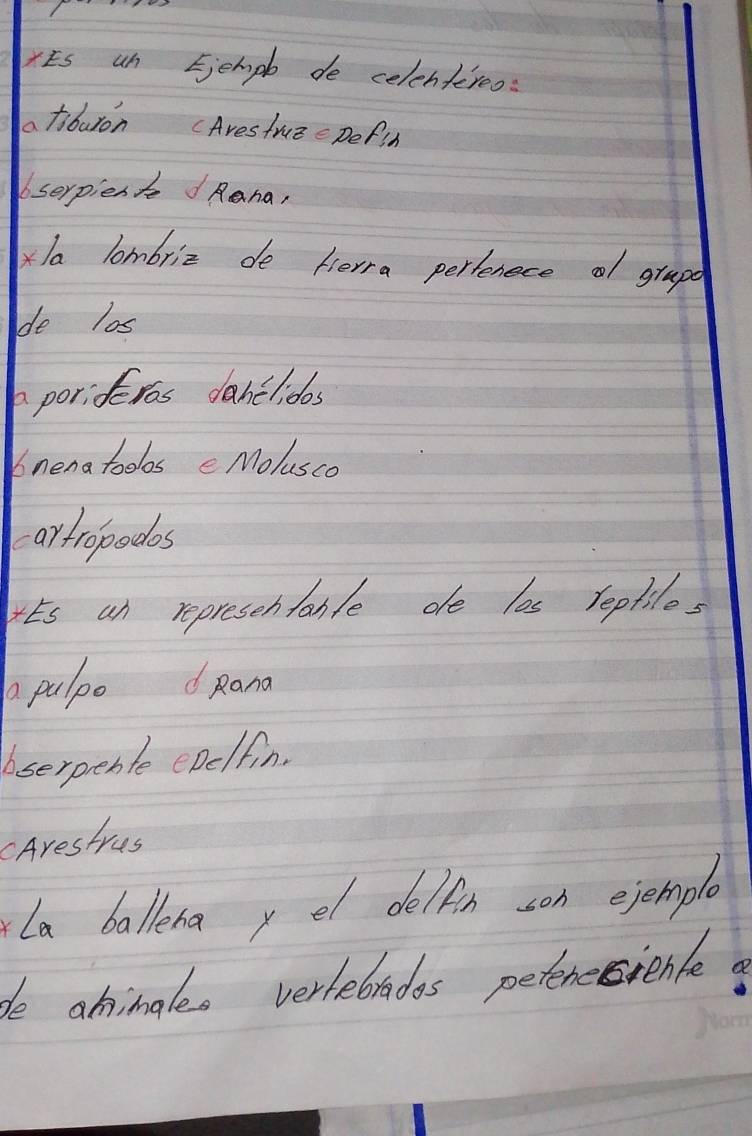 xEs un Ejemplo de celentéreo:
a tiburón c Avestruz e Defin
b serpiente d Rana.
x la lombriz de tierra pertenece al grupo
de los
a poriferos d anélidos
b nenatodos e Molusco
c artrópodos
x Es un representante de los reptiles
a pulpo d Rana
b serpiente e Delfin.
c Avestrus
x La ballena y el delfin son ejemplo
de animales vertebrados peteneciente a
Norm